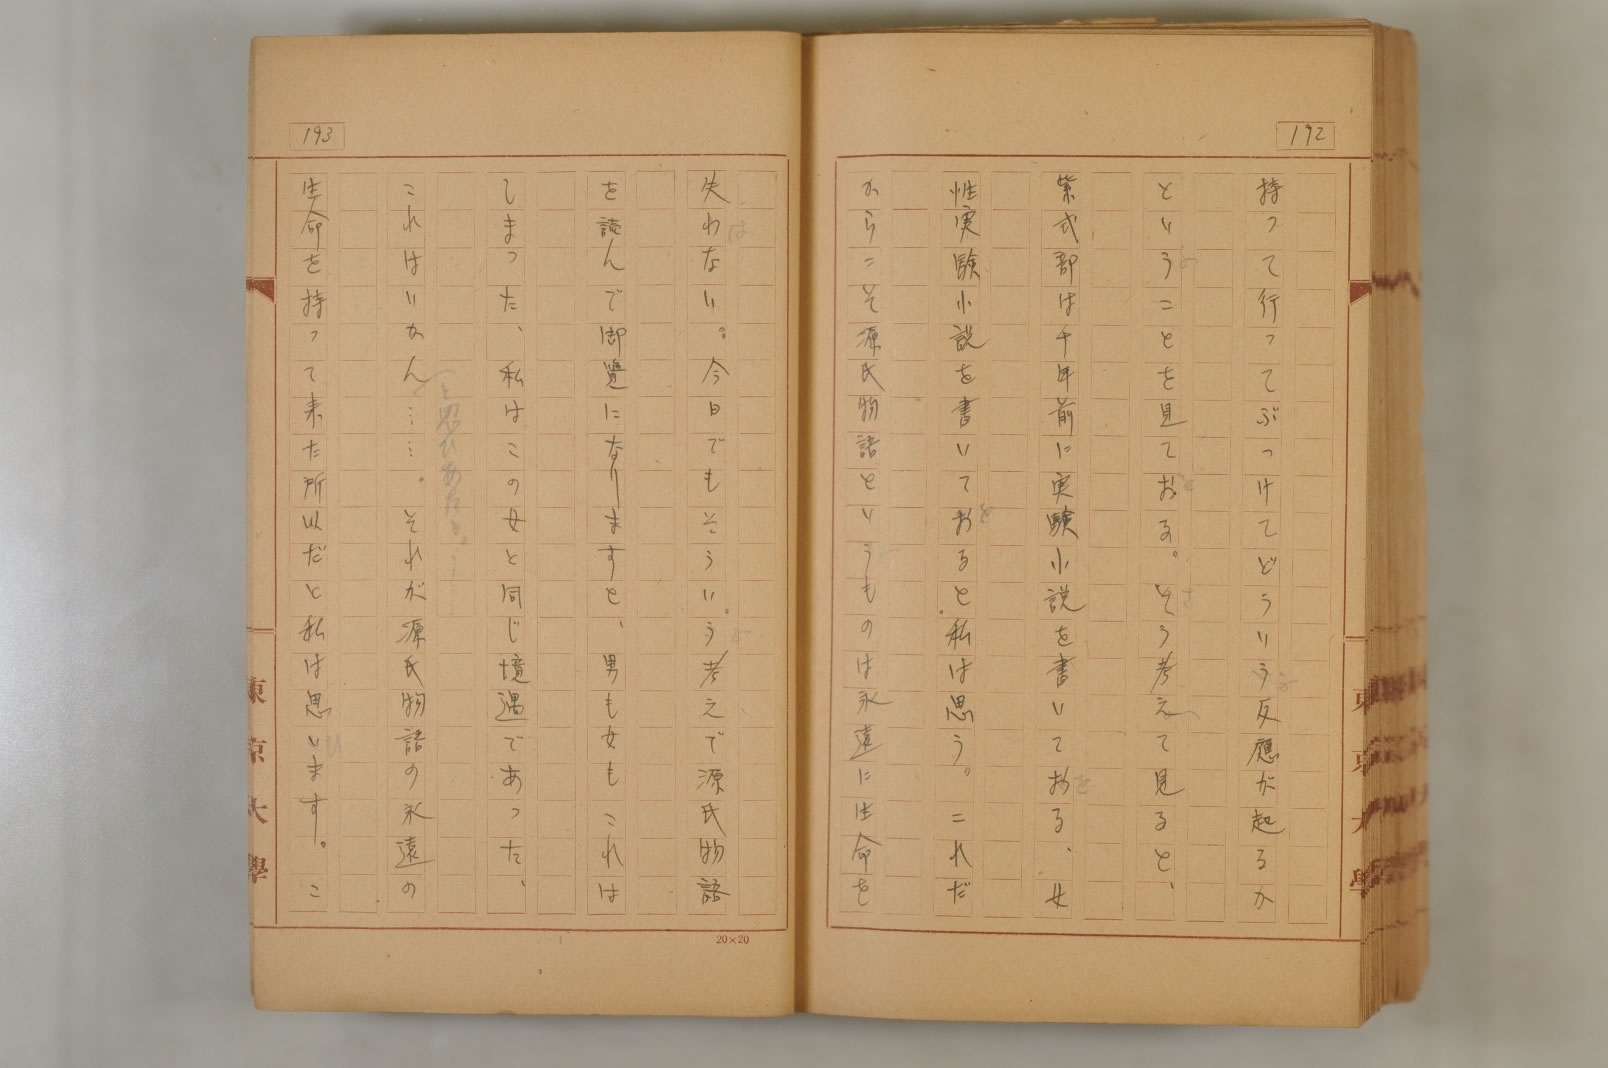 192
持って行ってぶっけてどういう反應が起るか
ということを見ておる。そう考えて見ると、
紫式部は千年前に実験小説を書いておる、女
性実験小説を書いておると私は思う。これだ
からこそ源氏物語というものは永遠に生命を
193
失わない。今日でもそういう考えで源氏物語
を読んで御覽になりますと、男も女もこれは
しまった、私はこの女と同じ境遇であった、
と思ひあたる。……
これはいかん……。それが源氏物語の永遠の
生命を持って来た所以だと私は思います。こ
20×20
東京大學
東京大學